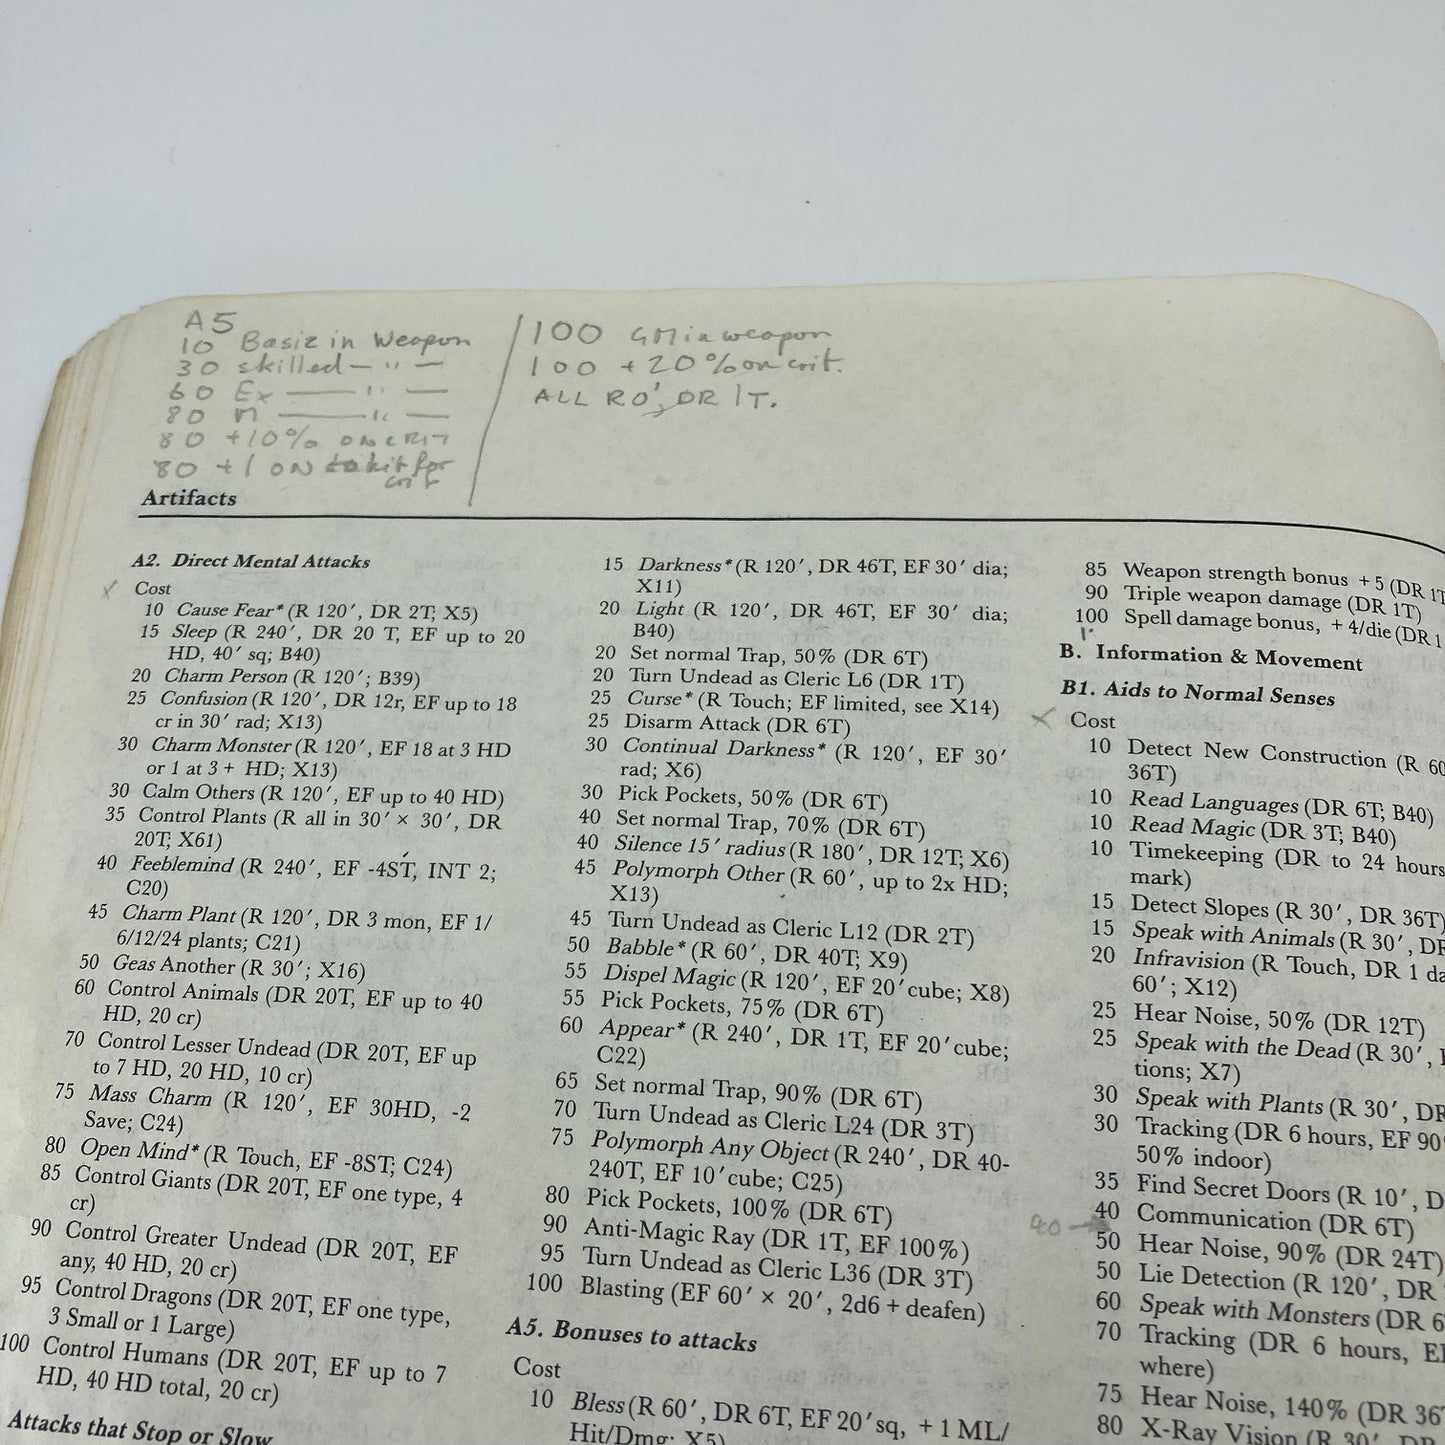 A5
10 Basic in Weapon
30 skilled — " —
60 Ex — " —
80 M — " —
80 +10% ON CRIT
80 +1 ON to hit for
crit
100 GM in weapon
100 +20% on crit.
ALL R0', DR 1T.
Artifacts
A2. Direct Mental Attacks
Cost
10 Cause Fear* (R 120′, DR 2T; X5)
15 Sleep (R 240′, DR 20 T, EF up to 20
HD, 40′ sq; B40)
20 Charm Person (R 120′; B39)
25 Confusion (R 120′, DR 12r, EF up to 18
cr in 30′ rad; X13)
30 Charm Monster (R 120′, EF 18 at 3 HD
or 1 at 3+ HD; X13)
30 Calm Others (R 120′, EF up to 40 HD)
35 Control Plants (R all in 30′ × 30′, DR
20T; X61)
40 Feeblemind (R 240′, EF -4ST, INT 2;
C20)
45 Charm Plant (R 120′, DR 3 mon, EF 1/
6/12/24 plants; C21)
50 Geas Another (R 30′; X16)
60 Control Animals (DR 20T, EF up to 40
HD, 20 cr)
70 Control Lesser Undead (DR 20T, EF up
to 7 HD, 20 HD, 10 cr)
75 Mass Charm (R 120′, EF 30HD, -2
Save; C24)
80 Open Mind* (R Touch, EF -8ST; C24)
85 Control Giants (DR 20T, EF one type, 4
cr)
90 Control Greater Undead (DR 20T, EF
any, 40 HD, 20 cr)
95 Control Dragons (DR 20T, EF one type,
3 Small or 1 Large)
100 Control Humans (DR 20T, EF up to 7
HD, 40 HD total, 20 cr)
Attacks that Stop or Slow
15 Darkness* (R 120′, DR 46T, EF 30′ dia;
X11)
20 Light (R 120′, DR 46T, EF 30′ dia;
B40)
20 Set normal Trap, 50% (DR 6T)
20 Turn Undead as Cleric L6 (DR 1T)
25 Curse* (R Touch; EF limited, see X14)
25 Disarm Attack (DR 6T)
30 Continual Darkness* (R 120′, EF 30′
rad; X6)
30 Pick Pockets, 50% (DR 6T)
40 Set normal Trap, 70% (DR 6T)
40 Silence 15′ radius (R 180′, DR 12T; X6)
45 Polymorph Other (R 60′, up to 2x HD;
X13)
45 Turn Undead as Cleric L12 (DR 2T)
50 Babble* (R 60′, DR 40T; X9)
55 Dispel Magic (R 120′, EF 20′cube; X8)
55 Pick Pockets, 75% (DR 6T)
60 Appear* (R 240′, DR 1T, EF 20′cube;
C22)
65 Set normal Trap, 90% (DR 6T)
70 Turn Undead as Cleric L24 (DR 3T)
75 Polymorph Any Object (R 240′, DR 40-
240T, EF 10′cube; C25)
80 Pick Pockets, 100% (DR 6T)
90 Anti-Magic Ray (DR 1T, EF 100%)
95 Turn Undead as Cleric L36 (DR 3T)
100 Blasting (EF 60′ × 20′, 2d6 + deafen)
A5. Bonuses to attacks
Cost
10 Bless (R 60′, DR 6T, EF 20′sq, +1 ML/
Hit/Dmg; X5)
85 Weapon strength bonus +5 (DR 1T
90 Triple weapon damage (DR 1T)
100 Spell damage bonus, +4/die (DR 1
B. Information & Movement
B1. Aids to Normal Senses
Cost
10 Detect New Construction (R 60
36T)
10 Read Languages (DR 6T; B40)
10 Read Magic (DR 3T; B40)
10 Timekeeping (DR to 24 hours
mark)
15 Detect Slopes (R 30′, DR 36T)
15 Speak with Animals (R 30′, DR
20 Infravision (R Touch, DR 1 da
60′; X12)
25 Hear Noise, 50% (DR 12T)
25 Speak with the Dead (R 30′,
tions; X7)
30 Speak with Plants (R 30′, DR
30 Tracking (DR 6 hours, EF 90
50% indoor)
35 Find Secret Doors (R 10′, D
40
40 Communication (DR 6T)
50 Hear Noise, 90% (DR 24T)
50 Lie Detection (R 120′, DR
60 Speak with Monsters (DR 6
70 Tracking (DR 6 hours, E
where)
75 Hear Noise, 140% (DR 36
80 X-Ray Vision (R 30′, DR